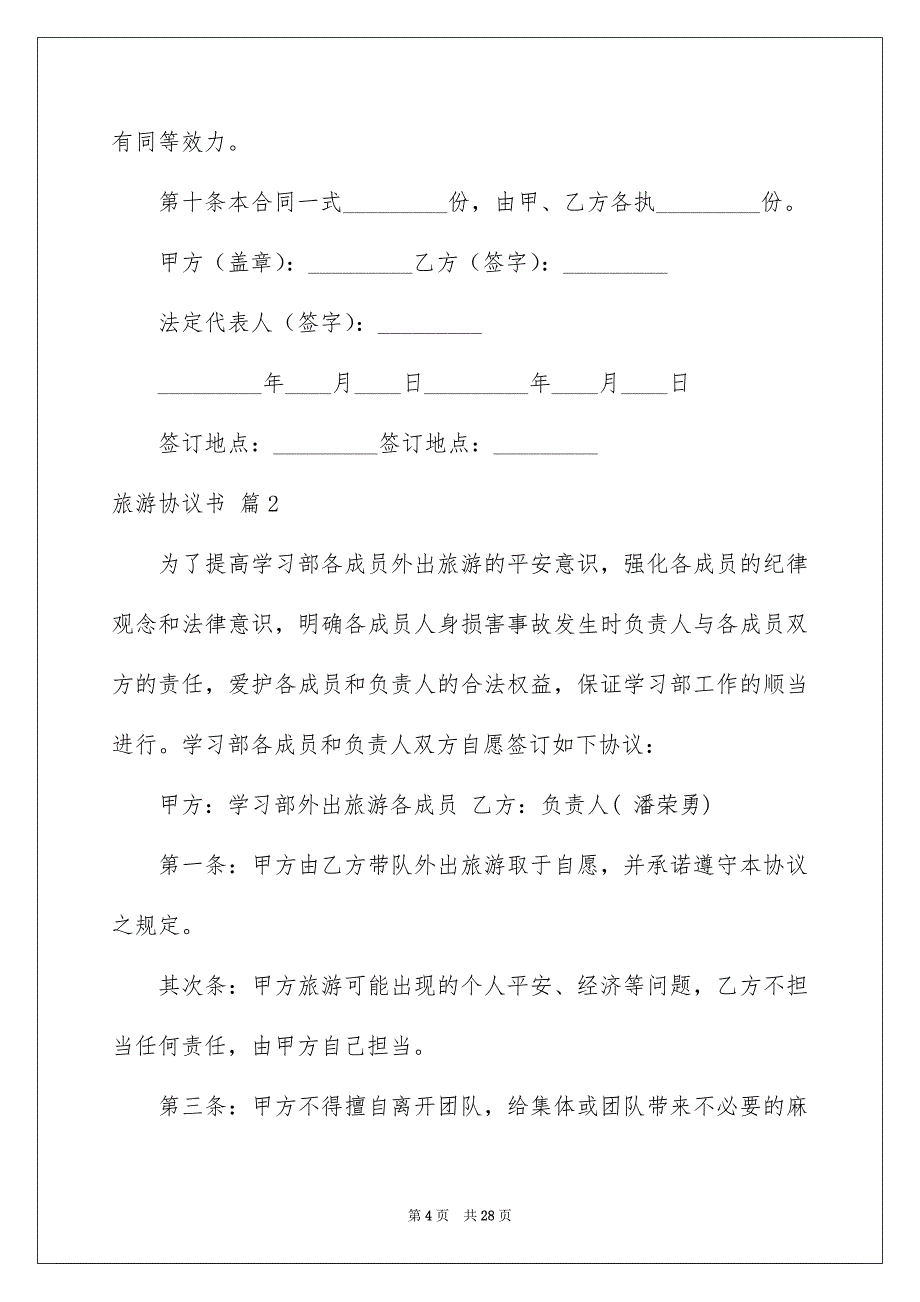 有同等效力。
第十条本合同一式_________份，由甲、乙方各执_________份。
甲方（盖章）：_________乙方（签字）：_________
法定代表人（签字）：_________
_________年____月____日_________年____月____日
签订地点：_________签订地点：_________
旅游协议书 篇2
为了提高学习部各成员外出旅游的平安意识，强化各成员的纪律
观念和法律意识，明确各成员人身损害事故发生时负责人与各成员双
方的责任，爱护各成员和负责人的合法权益，保证学习部工作的顺当
进行。学习部各成员和负责人双方自愿签订如下协议：
甲方：学习部外出旅游各成员 乙方：负责人( 潘荣勇)
第一条：甲方由乙方带队外出旅游取于自愿，并承诺遵守本协议
之规定。
其次条：甲方旅游可能出现的个人平安、经济等问题，乙方不担
当任何责任，由甲方自己担当。
第三条：甲方不得擅自离开团队，给集体或团队带来不必要的麻
第 4 页 共 28 页